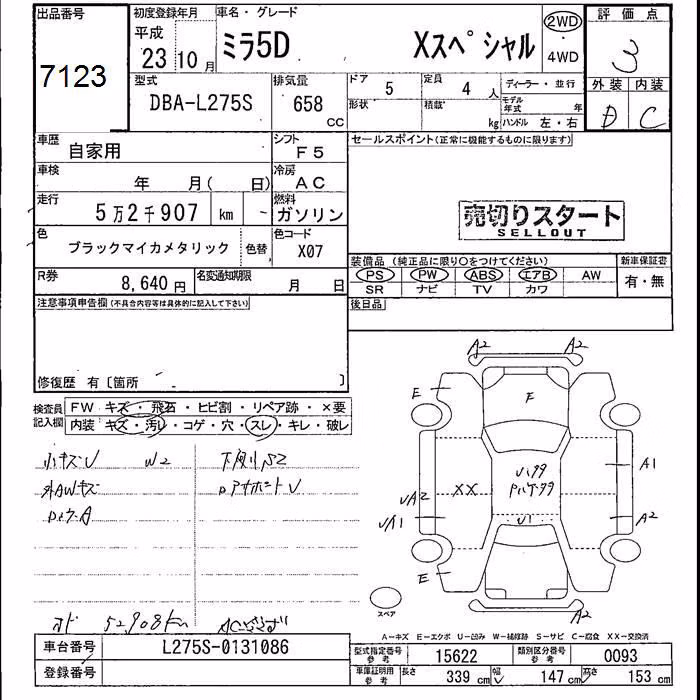 出品番号 初度登録年月 車名・グレード 評価点
7123 平成 23 10月 ミラ5D Xスペシャル 2WD・4WD 3
型式 排気量 ドア 定員 ディーラー・並行 外装 内装
DBA-L275S 658 cc 5 4人 D C
形状 積載 kg モデル年式 年 ハンドル 左・右
車歴 自家用 シフト F5 セールスポイント(正常に機能するものに限ります)
車検 年 月( 日) 冷房 AC
走行 5万2千907 km - 燃料 ガソリン
売切りスタート
SELLOUT
色 ブラックマイカメタリック 色替 色コード X07
装備品(純正品に限り○をつけてください) 新車保証書
PS PW ABS エアB AW 有・無
SR ナビ TV カワ
R券 8,640円 名変通知期限 月 日
後日品
注意事項申告欄(不具合内容等は具体的に記入して下さい)
修復歴 有〔箇所 〕
検査員記入欄 FW キズ・飛石・ヒビ割・リペア跡・×要
内装 キズ・汚レ・コゲ・穴・スレ・キレ・破レ
小キズU W2 下廻りS2
外AWキズ
A2 A2
E F E
A1
XX UA2
U1 UA1 A2
E E
A2
スペア
オド 52,908km
A-キズ E-エクボ U-凹み W-補修跡 S-サビ C-腐食 XX-交換済
車台番号 L275S-0131086
登録番号
型式指定番号 参考 15622 類別区分番号 参考 0093
車庫証明用 参考 長さ 339cm 幅 147cm 高さ 153cm